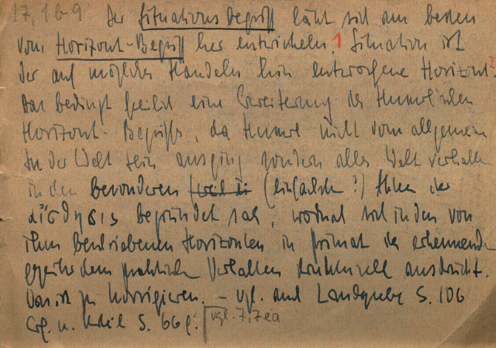 17,1b9 Der Situationsbegriff läßt sich am besten
vom Horizont-Begriff her entwickeln. 1 Situation ist
der auf mögliches Handeln hin entworfene Horizont. 2
Das bedingt freilich eine Erweiterung des Husserlschen
Horizont-Begriffs, da Husserl nicht vom allgemeinen
In der Welt sein ausging sondern alles Welt verhalten
in den besonderen (einfachen?) Akten der
αἴσθησις begründet sah, womit sich in den von
ihm beschriebenen Horizonten ein Primat des erkennenden
gegenüber dem praktischen Verhalten ausdrückt.
Das ist zu korrigieren. – Vgl. auch Landgrebe S. 106
Vgl. u. S. 66f. vgl. 7,7ea